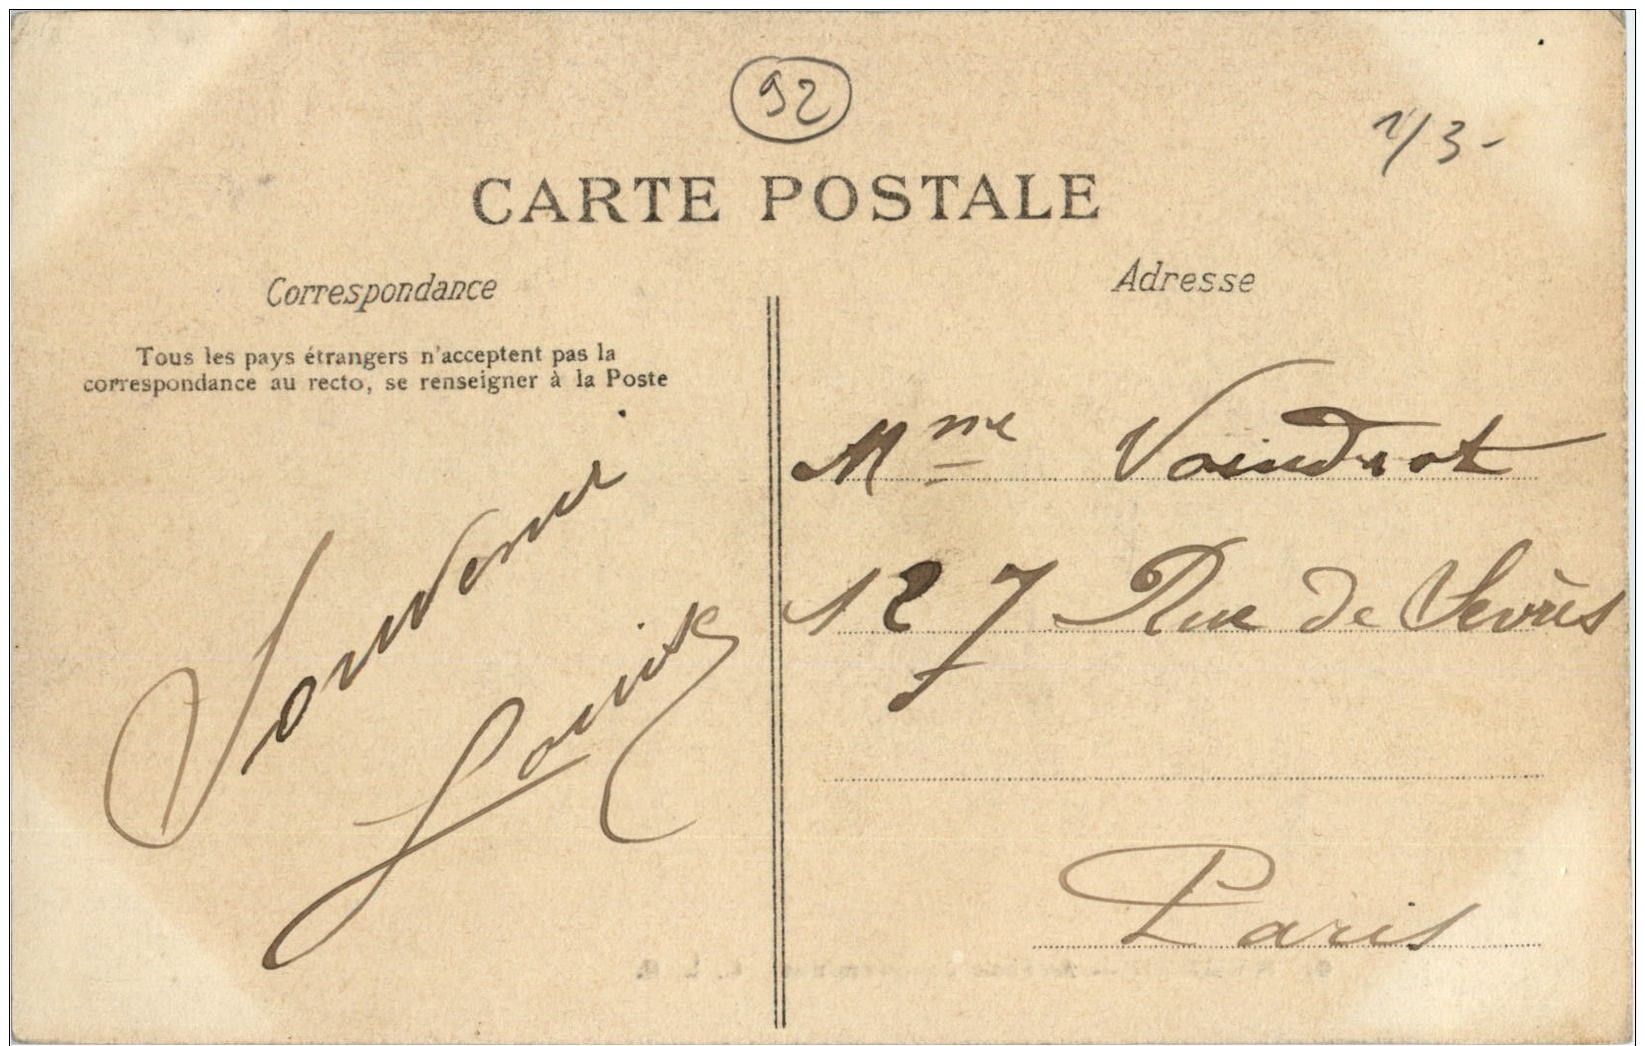 92
1/3-
CARTE POSTALE
Correspondance
Tous les pays étrangers n'acceptent pas la
correspondance au recto, se renseigner à la Poste
Souvenir
Louise
Adresse
Mme Voindrot
127 Rue de Sèvres
Paris